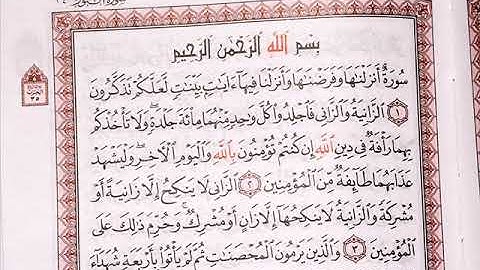 بِسْمِ اللَّهِ الرَّحْمَٰنِ الرَّحِيمِ
سُورَةٌ أَنزَلْنَاهَا وَفَرَضْنَاهَا وَأَنزَلْنَا فِيهَا آيَاتٍ بَيِّنَاتٍ لَّعَلَّكُمْ تَذَكَّرُونَ
١ الزَّانِيَةُ وَالزَّانِي فَاجْلِدُوا كُلَّ وَاحِدٍ مِّنْهُمَا مِائَةَ جَلْدَةٍ وَلَا تَأْخُذْكُم
بِهِمَا رَأْفَةٌ فِي دِينِ اللَّهِ إِن كُنتُمْ تُؤْمِنُونَ بِاللَّهِ وَالْيَوْمِ الْآخِرِ وَلْيَشْهَدْ
عَذَابَهُمَا طَائِفَةٌ مِّنَ الْمُؤْمِنِينَ ٢ الزَّانِي لَا يَنكِحُ إِلَّا زَانِيَةً أَوْ
مُشْرِكَةً وَالزَّانِيَةُ لَا يَنكِحُهَا إِلَّا زَانٍ أَوْ مُشْرِكٌ وَحُرِّمَ ذَٰلِكَ عَلَى
الْمُؤْمِنِينَ ٣ وَالَّذِينَ يَرْمُونَ الْمُحْصَنَاتِ ثُمَّ لَمْ يَأْتُوا بِأَرْبَعَةِ شُهَدَاءَ